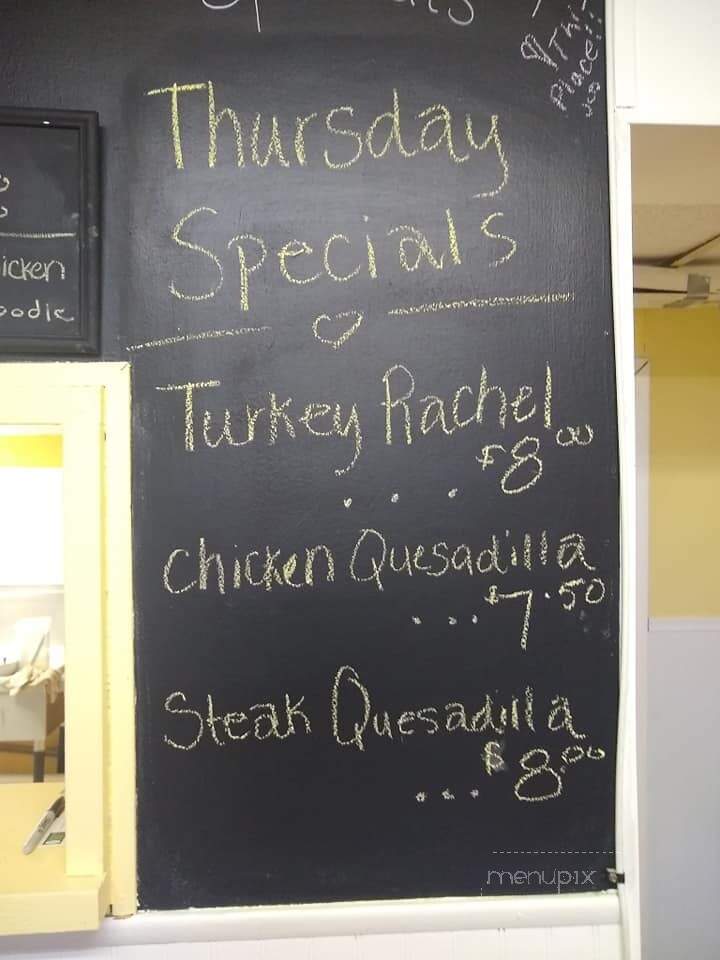 Thi
Place!!
Thursday
Specials
icken
oodie
Turkey Rachel
$8.00
...
Chicken Quesadilla
... $7.50
Steak Quesadilla
... $8.00
menupix